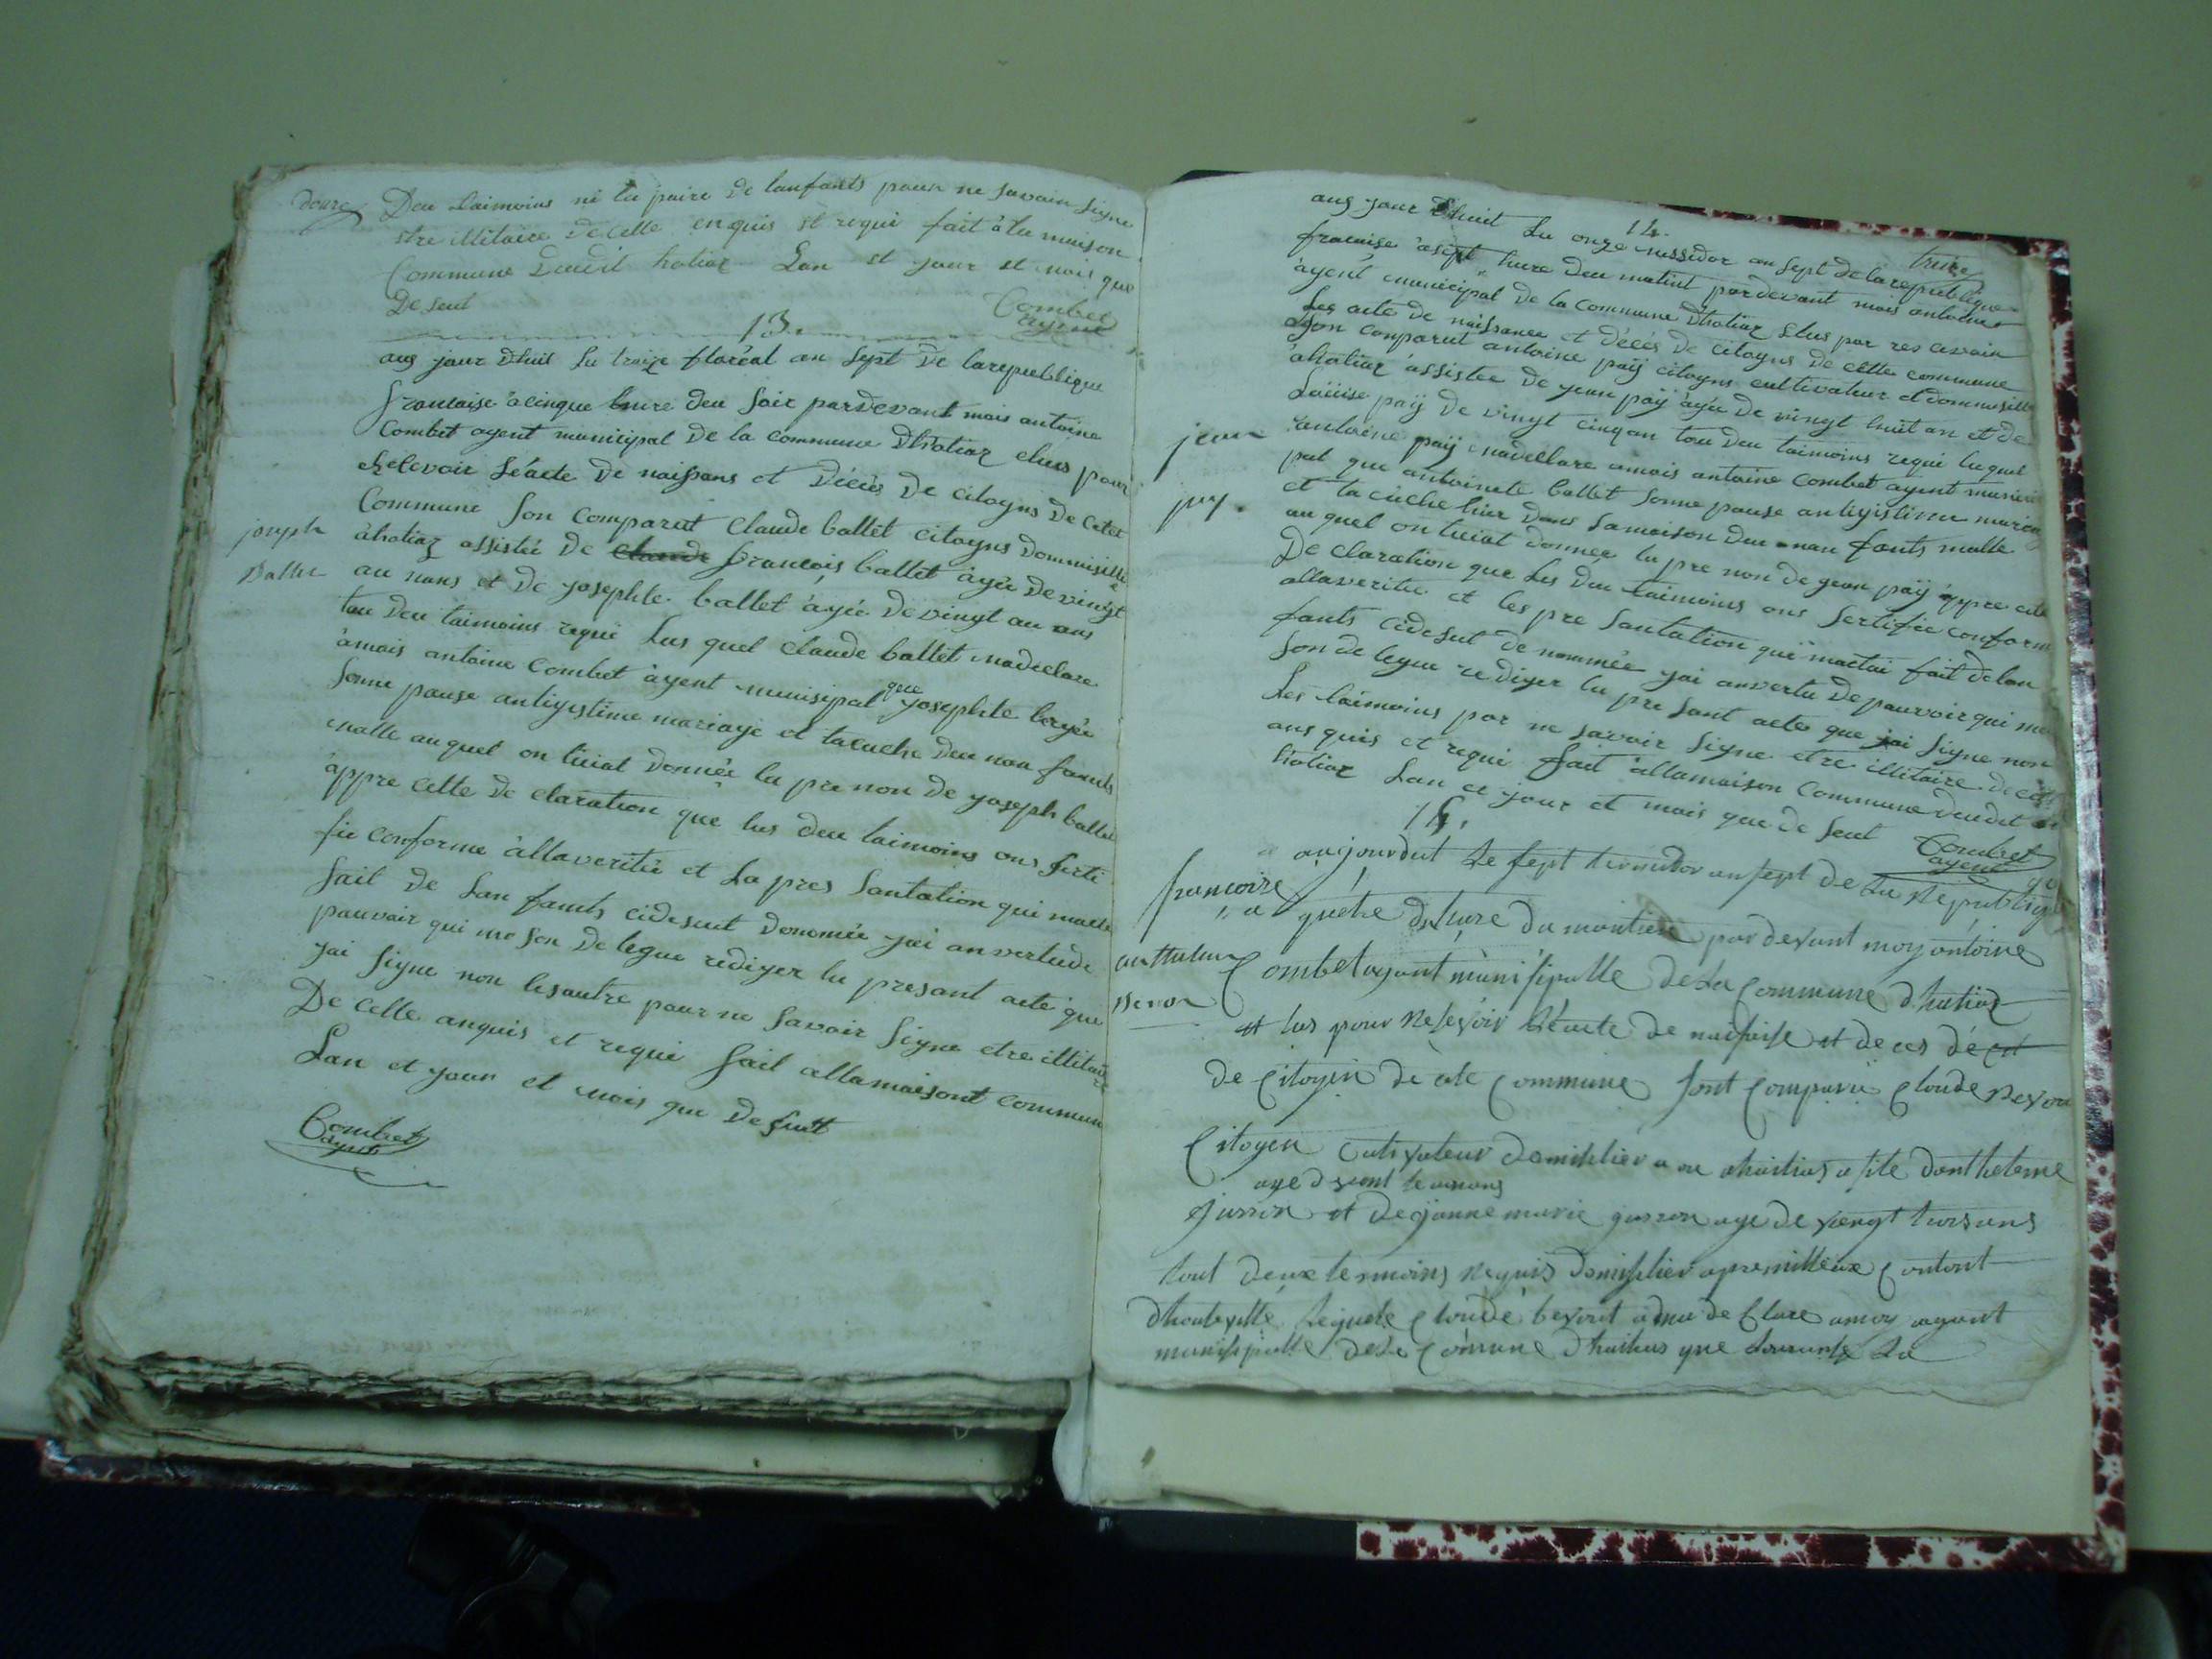 douze
Deu taimoins ni la paire de lanfants pour ne savoir signe
etre illitaire de celle enquis et requi fait à la maison
Commune dudit hotiaz Lan et jour et mois que
De seut
Combet
agent
13.
auj jour dhuit Lu traize floréal an sept De larepublique
francaise à cinque hure deu soir pardevant mois antoine
Combet agent municipal de la commune Dhotiaz elus pour
Relevoir Lé acte De naissans et Décès De citoyns De cette
Commune Son comparut Claude ballet citoyns Dommisillé
joseph
Ballet
àhotiaz assistée De francois ballet àgée De vingt
au nans et De josephte ballet àgée De vingt au ans
tou Deu taimoins requi Lus quel Claude ballet madeclare
àmois antoine Combet àgent munisipal que josephte
Sonne pause antigistime mariaje et tacuche Deu nou fants
malle auquel on tuiat Donnée lu pre non De joseph ballet
àppre cette De claration que lus deu taimoins ons serti
fie conforme àllaveritée et La pres santation qui
fait De Lan fants cidesuit Denomée jai anvertude
pauvoir qui me son De legue rediger lu presant acte que
jai signe non lesautre pour ne savoir signe etre illitaire
De celle anquis et requi fait allamaisont commun
Lan et jour et mois que De suit
Combet
agent
treize
14.
auj jour Dhuit Lu onze messidor an sept de larepublique
francaise àsept hure deu matint pardevant mois antoine
àgent municipal de la commune Dhotiaz Elus par res cevoir
Les acte de naissance et décés De citoyns de cette commune
Son comparut antoine paÿ citoyns cultivateur et dommisillé
àhotiaz àssistee De jean paÿ àgée De vingt huit an et de
Loüise paÿ De vingt cinq an tou Deu taimoins requi luquel
jean
pey.
antoine paÿ madeclare amois antoine Combet agent munici
pal que antoinete ballet Sonne pause antigistime mariaj
et tacuche hier Dans samaison Deu nau fants malle
au quel on tuiat donnée lu pre non de jean paÿ àppre cete
De claration que Les Deu taimoins ons sertifie conform
allaveritée et les pre santation qui fait delan
fants cidesut de nommée jai anvertu De pauvoir qui me
son de legue rediger lu pre sant acte que jai signe non
Les taimoins par ne savoir signe etre illitaire de
ans quis et requi fait allamaison commune deudit
hotiaz Lan et jour et mais que de seut Combet
agent
15.
aujourdut Le sept termidor an sept de La Republique
francoise
a quatre dhure du par devant moy antoine
Combet agant munisipalle de La Commune d'hotias
et lus pour Resevoir Lé acte de naisise et de ces décet
de Citoyen de cete Commune sont Comparu Cloude Revon
Citoyen Cutivateur domisilier a hotias
et de janne marie age de vengt trois ans
tout deux temoins Requis domisilier Contont
d'hauteville Lequele Cloude a de Clare a moy agant
munisipalle de La Comune d'hotias que La